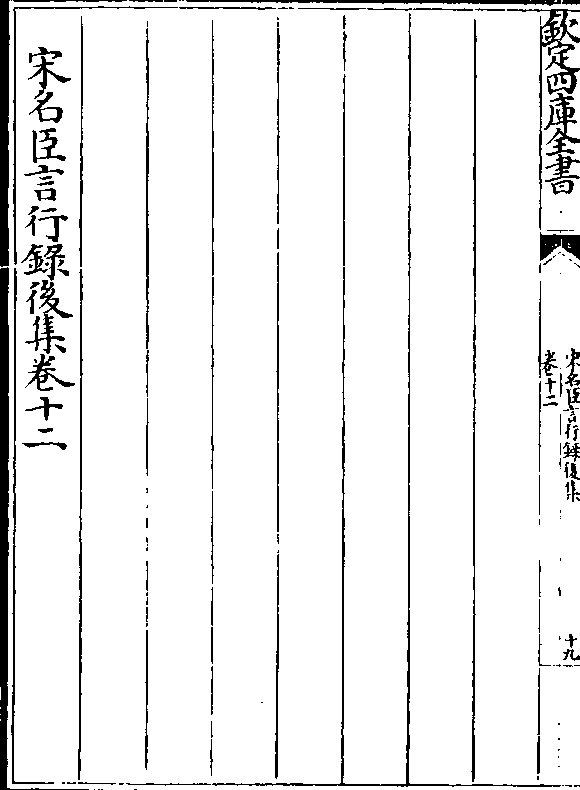 欽定四庫全書
宋名臣言行録後集
卷十二
十九
宋名臣言行録後集卷十二